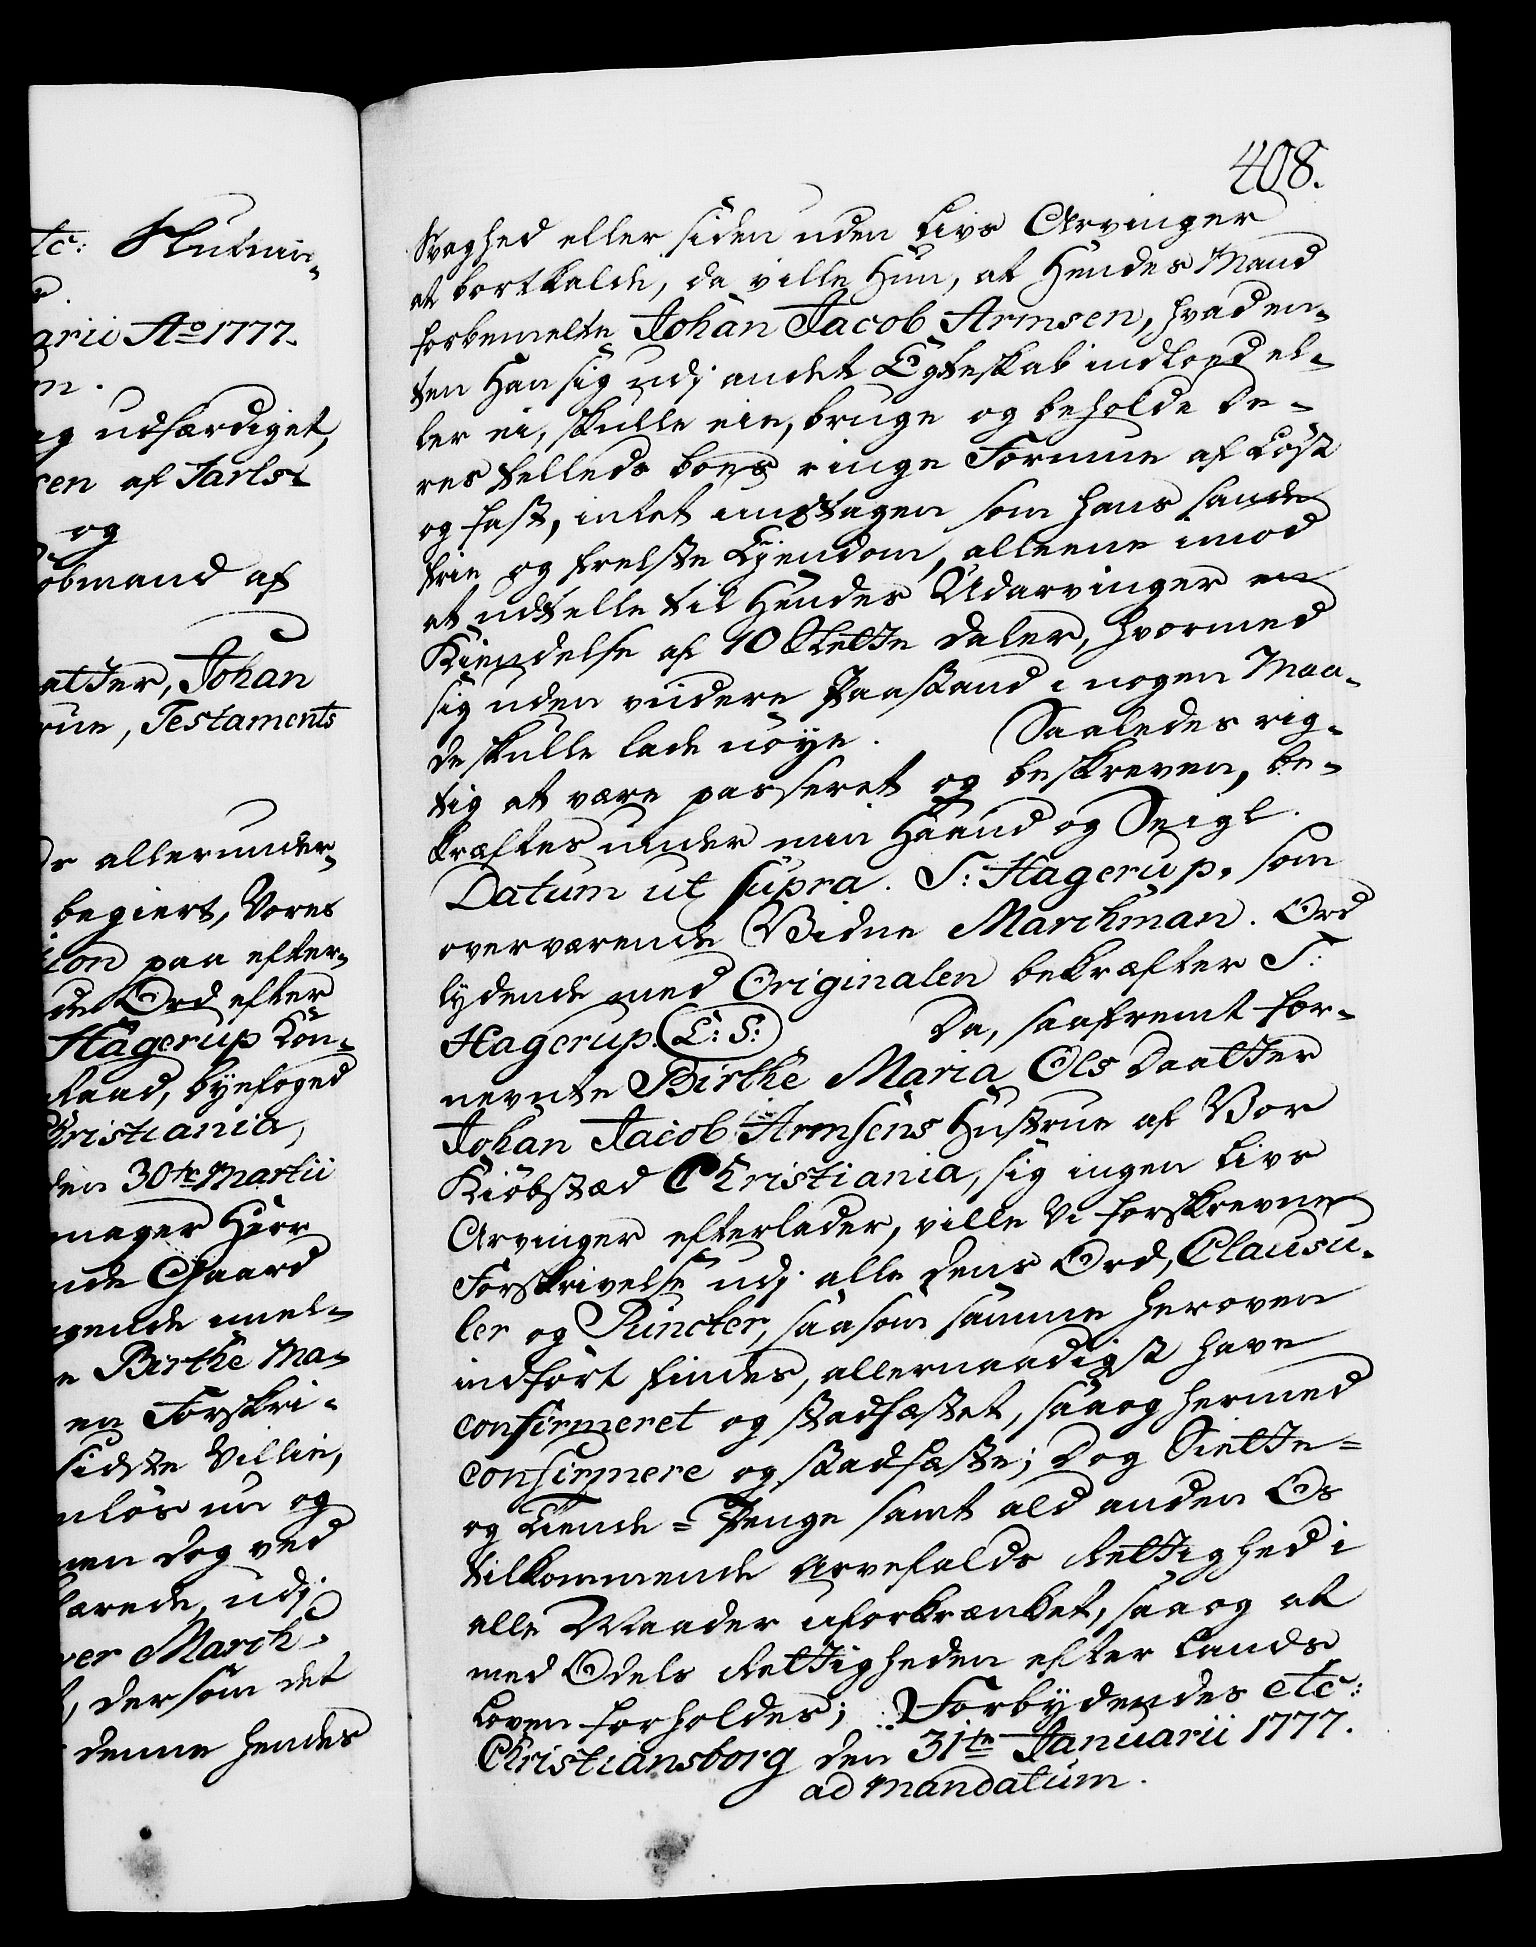 tc: Slutnin-
arii Ao 1777.
ag udfærdiget,
sen af Jarls-
og
iöbmand af
atter, Johan
rue, Testaments
allerunder-
begiert, Vores
tion paa efter-
de Ord efter
Hagerup Kon-
Raad, byefoged
Christiania,
den 30te Martii
mager Herr
nde Gaard
e Birthe Ma-
en Forskri-
sidste Villie,
nlös nu og
men dog ved
larede, udj
ver March-
, dersom det
denne hendes
408.
Svaghed eller siden uden Livs Arvinger
at bortkalde, da ville Hun, at Hendes Mand
forbemelte Johan Jacob Armsen, hvaden-
ten Han sig udj andet Egteskab indlod el-
ler ei, skulle eie, bruge og beholde de-
res fælleds boes ringe Formue af Löst
og fast, intet undtagen som hans sande
frie og frelste Ejendom, alleene imod
at udtælle til Hendes Udarvinger en
Kiendelse af 10 Slette Daler, hvormed
sig uden viidere Paastand i nogen Maa-
de skulle lade nöye. Saaledes rig-
tig at være passeret og beskreven, be-
kræftes under min Haand og Seigl.
Datum ut supra. S: Hagerup. som
overværende Vidne Marchman. Ord
lydende med Originalen bekræfter S:
Hagerup. (L: S:) Da, saafremt for-
nevnte Birthe Maria Ols Daatter
Johan Jacob Armsens Hustrue af Vor
Kiöbstæd Christiania, sig ingen Livs
Arvinger efterlader, ville Vi forskrevne
Forskrivelse udj alle dens Ord, Clausu-
ler og Puncter, saasom samme heroven
indfört findes, allernaadigst have
confirmeret og stadfæstet, saa og hermed
confirmere og stadfæste; Dog Siette-
og Tiende-Penge samt ald anden Os
tilkommende Arvefalds Rettighed i
alle Maader uforkrænket, saa og at
med Odels Rettigheden efter Lands
Loven forholdes; Forbydendes etc:
Christiansborg den 31te Januarii 1777.
ad mandatum.